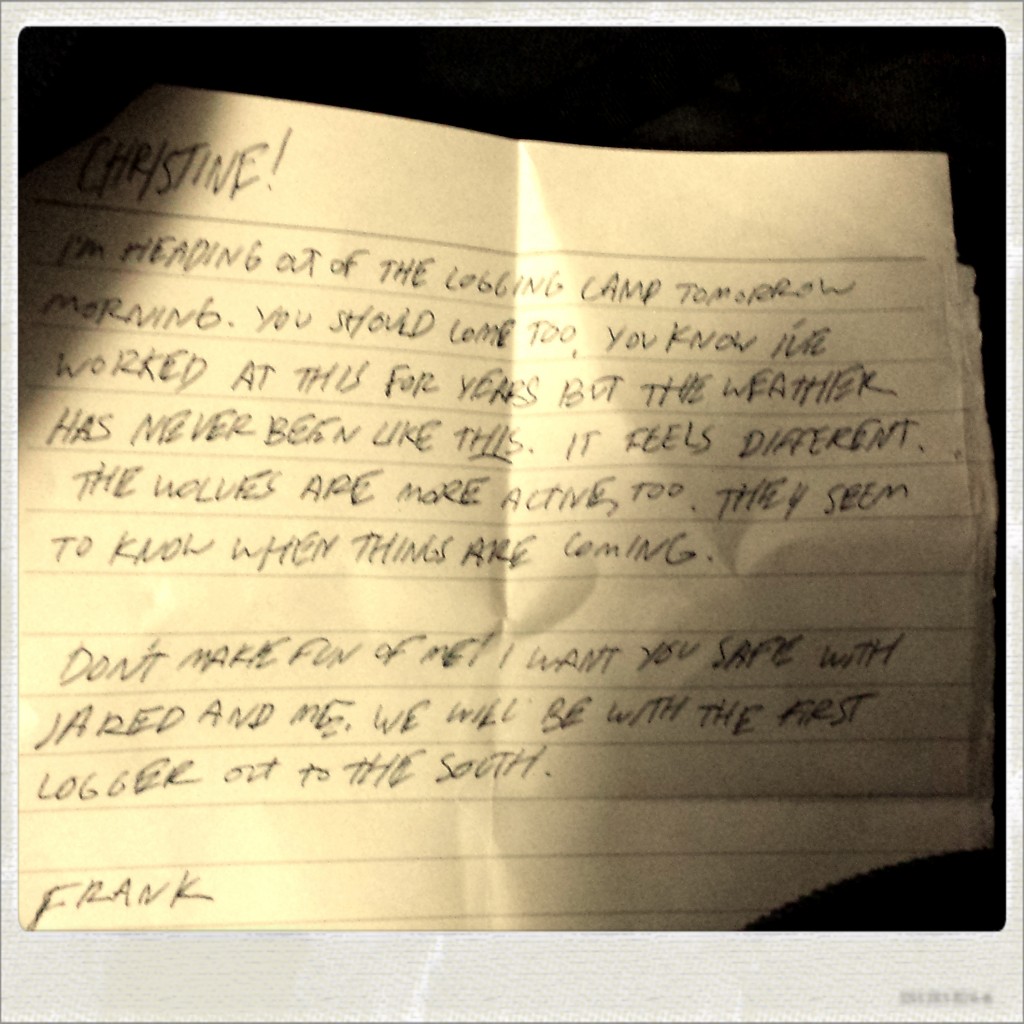 CHRISTINE!
I'M HEADING OUT OF THE LOGGING CAMP TOMORROW
MORNING. YOU SHOULD COME TOO. YOU KNOW I'VE
WORKED AT THIS FOR YEARS BUT THE WEATHER
HAS NEVER BEEN LIKE THIS. IT FEELS DIFFERENT.
THE WOLVES ARE MORE ACTIVE, TOO. THEY SEEM
TO KNOW WHEN THINGS ARE COMING.
DON'T MAKE FUN OF ME! I WANT YOU SAFE WITH
JARED AND ME. WE WILL BE WITH THE FIRST
LOGGER OUT TO THE SOUTH.
FRANK